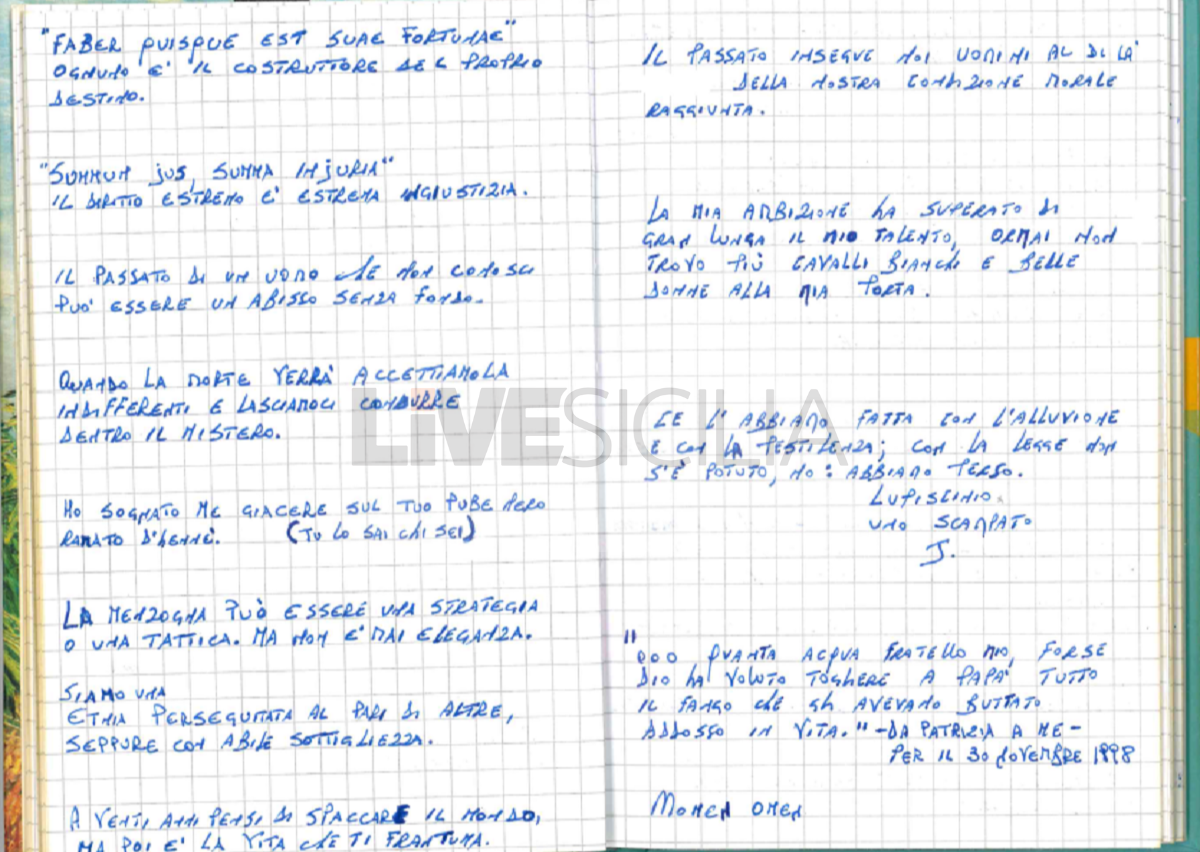 "FABER QUISQUE EST SUAE FORTUNAE"
OGNUNO E' IL COSTRUTTORE DEL PROPRIO
DESTINO.
"SUMMUM jUS, SUMMA INjURIA"
IL DIRITTO ESTREMO E' ESTREMA INGIUSTIZIA.
IL PASSATO DI UN UOMO CHE NON CONOSCI
PUO' ESSERE UN ABISSO SENZA FONDO.
QUANDO LA MORTE VERRÀ ACCETTIAMOLA
INDIFFERENTI E LASCIAMOCI CONDURRE
DENTRO IL MISTERO.
HO SOGNATO ME GIACERE SUL TUO PUBE NERO
RAMATO D'HENNÉ. (TU LO SAI CHI SEI)
LA MENZOGNA PUÒ ESSERE UNA STRATEGIA
O UNA TATTICA. MA NON E' MAI ELEGANZA.
SIAMO UNA
ETNIA PERSEGUITATA AL PARI DI ALTRE,
SEPPURE CON ABILE SOTTIGLIEZZA.
A VENTI ANNI PENSI DI SPACCARE IL MONDO,
MA POI E' LA VITA CHE TI FRANTUMA.
IL PASSATO INSEGUE NOI UOMINI AL DI LÀ
DELLA NOSTRA CONDIZIONE MORALE
RAGGIUNTA.
LA MIA AMBIZIONE HA SUPERATO DI
GRAN LUNGA IL MIO TALENTO, ORMAI NON
TROVO PIÙ CAVALLI BIANCHI E BELLE
DONNE ALLA MIA PORTA.
CE L'ABBIAMO FATTA CON L'ALLUVIONE
E CON LA PESTILENZA; CON LA LEGGE NON
S'È POTUTO, NO: ABBIAMO PERSO.
LUPISCINIO
UNO SCAMPATO
J.
"ooo QUANTA ACQUA FRATELLO MIO, FORSE
DIO HA VOLUTO TOGLIERE A PAPÀ TUTTO
IL FANGO CHE GLI AVEVANO BUTTATO
ADDOSSO IN VITA." -DA PATRIZIA A ME-
PER IL 30 NOVEMBRE 1998
NOMEN OMEN
LIVESICILIA